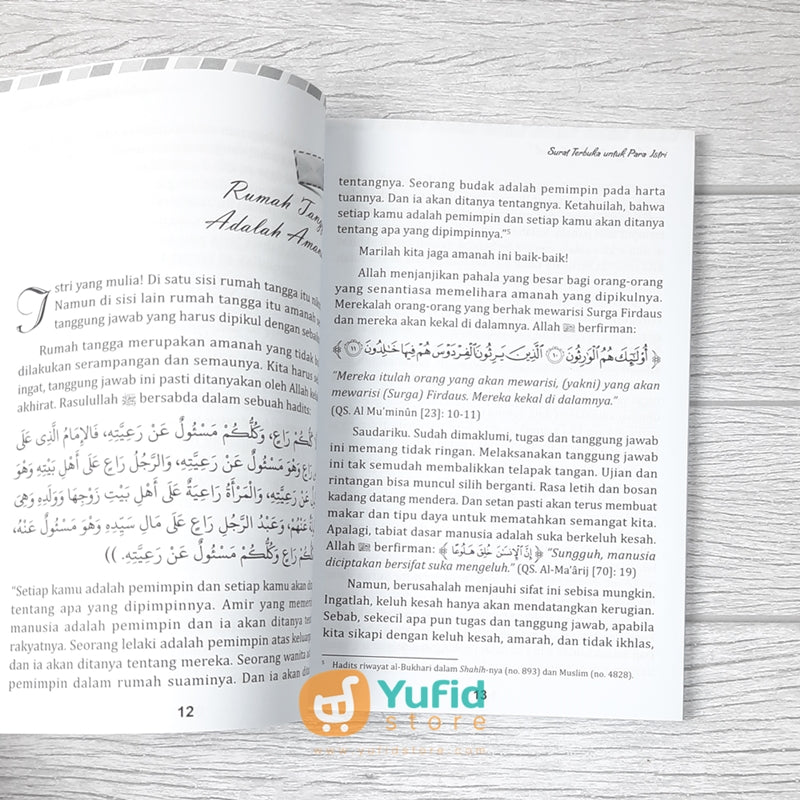 Rumah
Adalah
Istri yang mulia! Di satu sisi rumah tangga itu
Namun di sisi lain rumah tangga itu amanah
tanggung jawab yang harus dipikul dengan
Rumah tangga merupakan amanah yang tidak
dilakukan serampangan dan semaunya. Kita harus
ingat, tanggung jawab ini pasti ditanyakan oleh Allah
akhirat. Rasulullah ﷺ bersabda dalam sebuah hadits:
رَاعٍ، وَكُلُّكُمْ مَسْئُولٌ عَنْ رَعِيَّتِهِ، فَالإِمَامُ الَّذِي عَلَى
رَاعٍ وَهُوَ مَسْئُولٌ عَنْ رَعِيَّتِهِ، وَالرَّجُلُ رَاعٍ عَلَى أَهْلِ بَيْتِهِ وَهُوَ
عَنْ رَعِيَّتِهِ، وَالْمَرْأَةُ رَاعِيَةٌ عَلَى أَهْلِ بَيْتِ زَوْجِهَا وَوَلَدِهِ وَهِيَ
عَنْهُمْ، وَعَبْدُ الرَّجُلِ رَاعٍ عَلَى مَالِ سَيِّدِهِ وَهُوَ مَسْئُولٌ عَنْهُ،
رَاعٍ وَكُلُّكُمْ مَسْئُولٌ عَنْ رَعِيَّتِهِ. ))
"Setiap kamu adalah pemimpin dan setiap kamu akan
tentang apa yang dipimpinnya. Amir yang
manusia adalah pemimpin dan ia akan ditanya
rakyatnya. Seorang lelaki adalah pemimpin atas
dan ia akan ditanya tentang mereka. Seorang wanita
pemimpin dalam rumah suaminya. Dan ia akan
12
Surat Terbuka untuk Para Istri
tentangnya. Seorang budak adalah pemimpin pada harta
tuannya. Dan ia akan ditanya tentangnya. Ketahuilah, bahwa
setiap kamu adalah pemimpin dan setiap kamu akan ditanya
tentang apa yang dipimpinnya."⁵
Marilah kita jaga amanah ini baik-baik!
Allah menjanjikan pahala yang besar bagi orang-orang
yang senantiasa memelihara amanah yang dipikulnya.
Merekalah orang-orang yang berhak mewarisi Surga Firdaus
dan mereka akan kekal di dalamnya. Allah ﷻ berfirman:
﴿ أُوْلَٰٓئِكَ هُمُ ٱلْوَٰرِثُونَ ١٠ ٱلَّذِينَ يَرِثُونَ ٱلْفِرْدَوْسَ هُمْ فِيهَا خَٰلِدُونَ ١١ ﴾
"Mereka itulah orang yang akan mewarisi, (yakni) yang akan
mewarisi (Surga) Firdaus. Mereka kekal di dalamnya."
(QS. Al Mu'minûn [23]: 10-11)
Saudariku. Sudah dimaklumi, tugas dan tanggung jawab
ini memang tidak ringan. Melaksanakan tanggung jawab
ini tak semudah membalikkan telapak tangan. Ujian dan
rintangan bisa muncul silih berganti. Rasa letih dan bosan
kadang datang mendera. Dan setan pasti akan terus membuat
makar dan tipu daya untuk mematahkan semangat kita.
Apalagi, tabiat dasar manusia adalah suka berkeluh kesah.
Allah ﷻ berfirman: ﴿ إِنَّ ٱلْإِنسَٰنَ خُلِقَ هَلُوعًا ﴾ "Sungguh, manusia
diciptakan bersifat suka mengeluh." (QS. Al-Ma'ârij [70]: 19)
Namun, berusahalah menjauhi sifat ini sebisa mungkin.
Ingatlah, keluh kesah hanya akan mendatangkan kerugian.
Sebab, sekecil apa pun tugas dan tanggung jawab, apabila
kita sikapi dengan keluh kesah, amarah, dan tidak ikhlas,
⁵ Hadits riwayat al-Bukhari dalam Shahih-nya (no. 893) dan Muslim (no. 4828).
13
Yufid
store
www.yufidstore.com